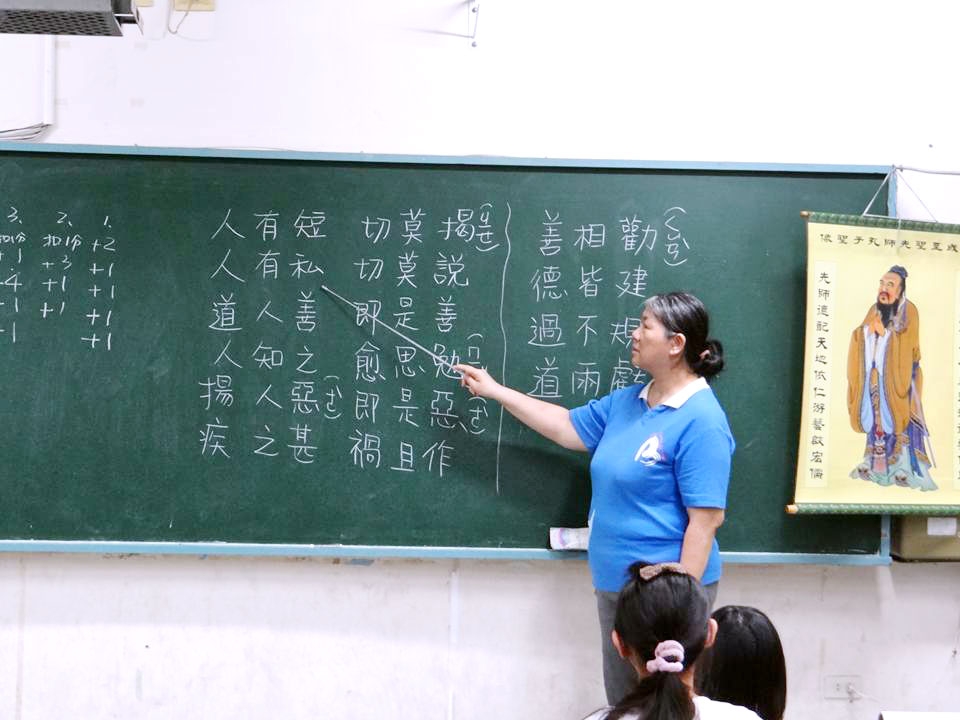 3. 2. 1.
扣分 扣分 +2
+1 +3 +1
-4 +1 +1
+1 +1 +1
+1 +1
人有短 切莫揭
人有私 切莫說
道人善 即是善
人知之 愈思勉
揚人惡 即是惡
疾之甚 禍且作
善相勸
德皆建
過不規
道兩虧
成至聖先師孔子聖像
先師德配天地依仁游藝啟宏儒